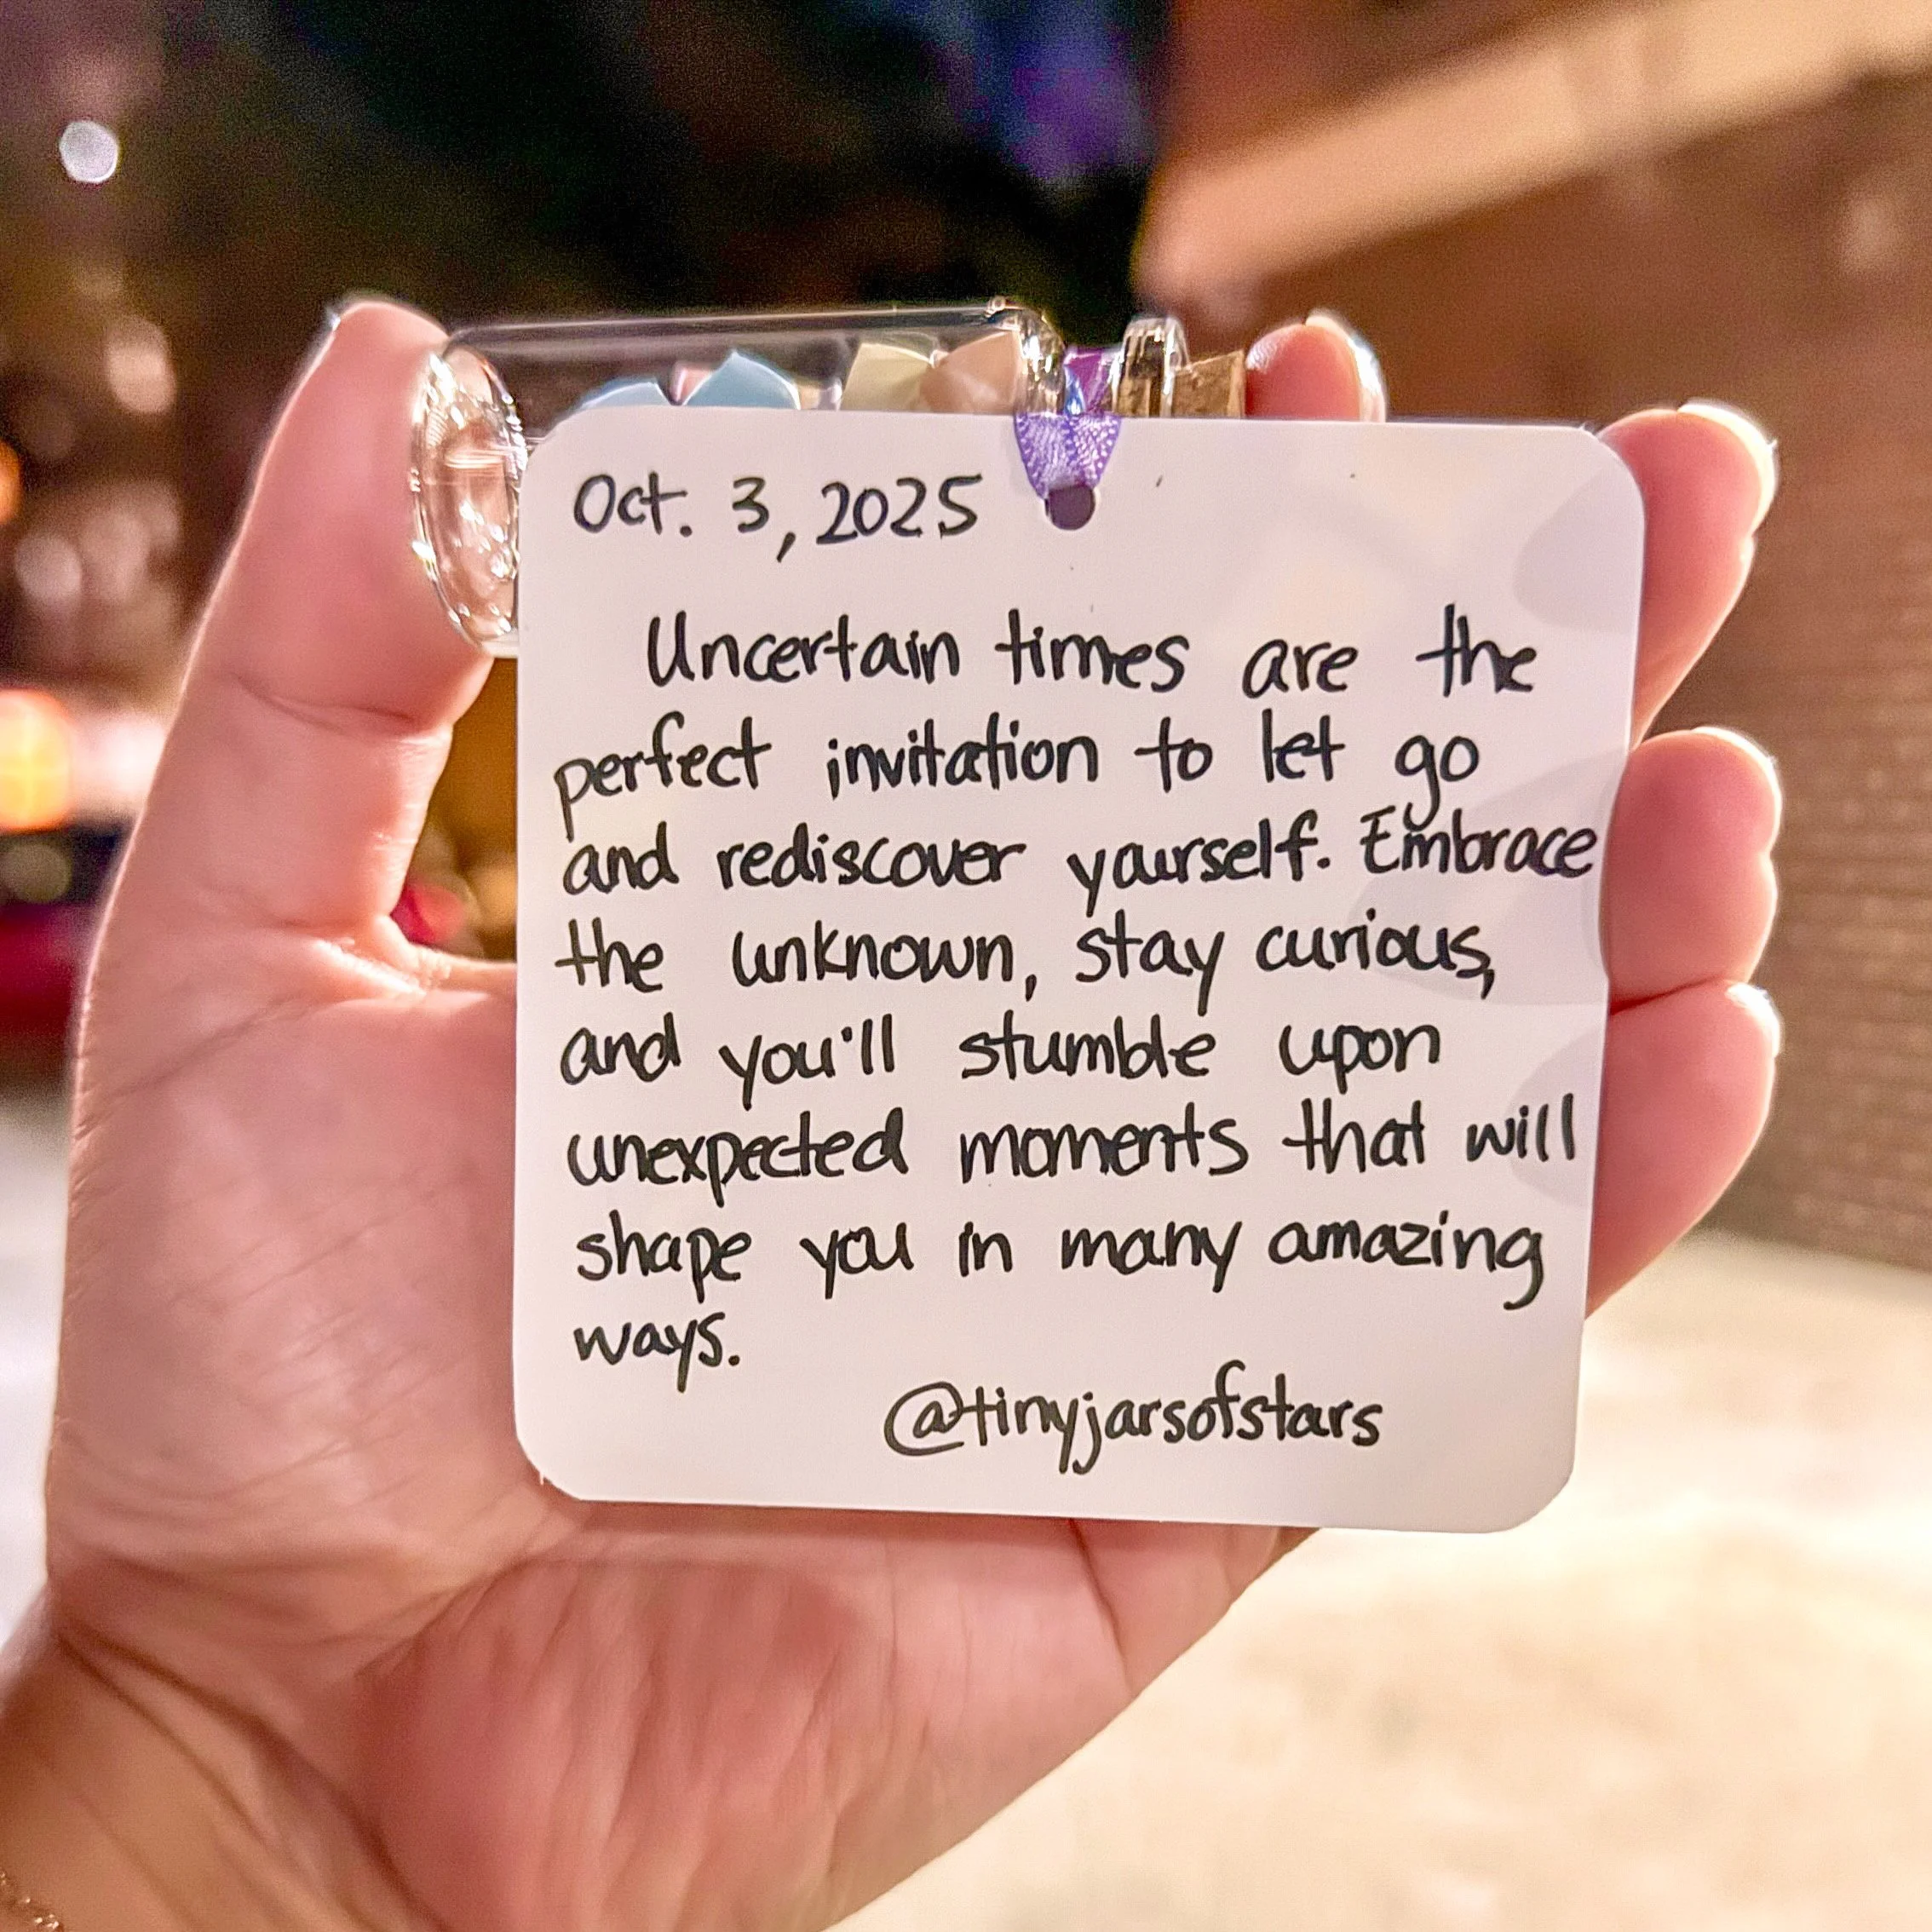 Oct. 3, 2025
Uncertain times are the
perfect invitation to let go
and rediscover yourself. Embrace
the unknown, stay curious,
and you'll stumble upon
unexpected moments that will
shape you in many amazing
ways.
@tinyjarsofstars